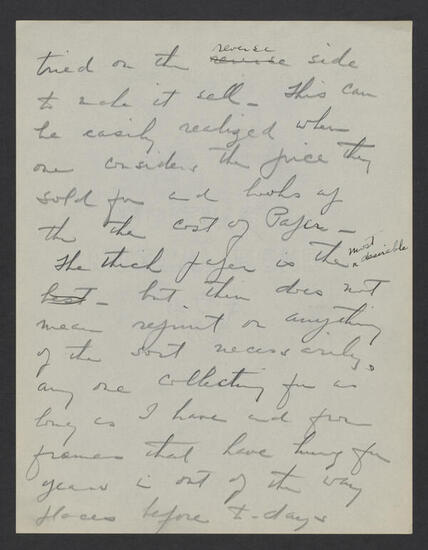 tried on the reverse reverse side
to make it sell – This can
be easily realized when
one considers the price they
sold for and looks at
the the cost of Paper –
The thick paper is the most desirable
best – but thin does not
mean reprint or anything
of the sort necessarily,
any one collecting for as
long as I have and from
frames that have hung for
years in out of the way
places before to-days